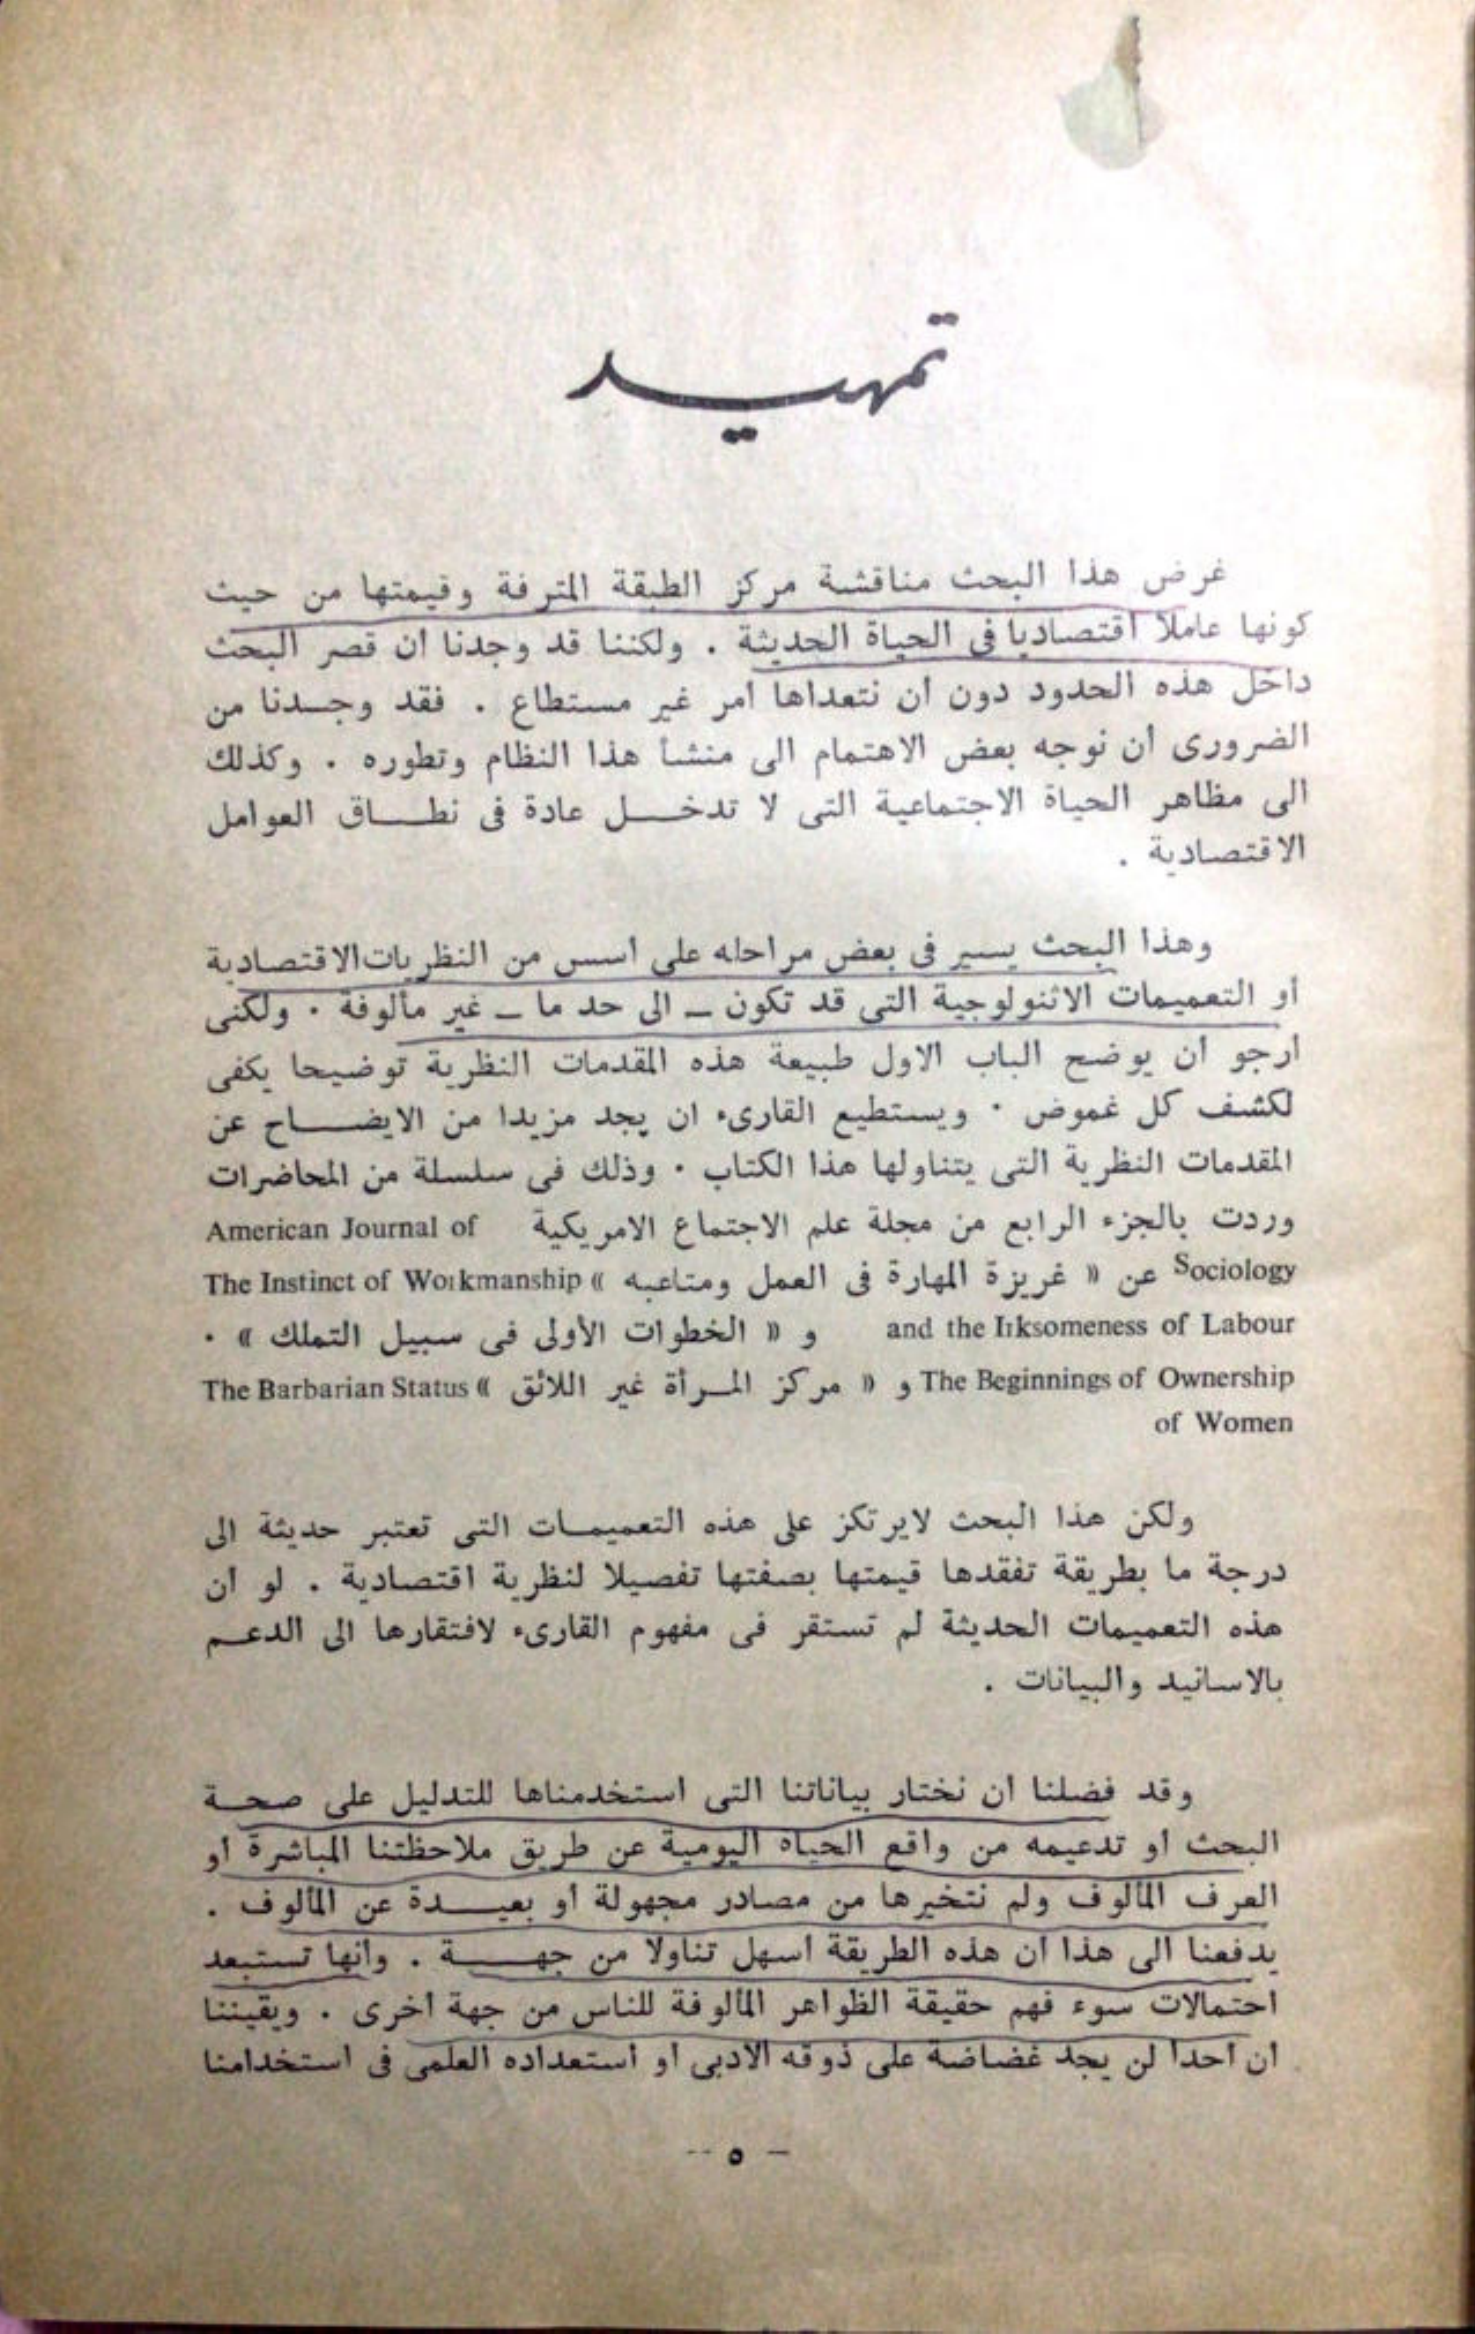 تمهيد
غرض هذا البحث مناقشة مركز الطبقة المترفة وقيمتها من حيث
كونها عاملا اقتصاديا فى الحياة الحديثة . ولكننا قد وجدنا ان قصر البحث
داخل هذه الحدود دون ان نتعداها امر غير مستطاع . فقد وجدنا من
الضرورى ان نوجه بعض الاهتمام الى منشأ هذا النظام وتطوره . وكذلك
الى مظاهر الحياة الاجتماعية التى لا تدخل عادة فى نطاق العوامل
الاقتصادية .
وهذا البحث يسير فى بعض مراحله على اسس من النظريات الاقتصادية
أو التعميمات الاثنولوجية التى قد تكون – الى حد ما – غير مألوفة . ولكنى
ارجو ان يوضح الباب الاول طبيعة هذه المقدمات النظرية توضيحا يكفى
لكشف كل غموض . ويستطيع القارىء ان يجد مزيدا من الايضاح عن
المقدمات النظرية التى يتناولها هذا الكتاب . وذلك فى سلسلة من المحاضرات
وردت بالجزء الرابع من مجلة علم الاجتماع الامريكية American Journal of
Sociology عن « غريزة المهارة فى العمل ومتاعبه » The Instinct of Workmanship
and the Irksomeness of Labour و « الخطوات الأولى فى سبيل التملك » .
The Beginnings of Ownership و « مركز المرأة غير اللائق » The Barbarian Status
of Women
ولكن هذا البحث لايرتكز على هذه التعميمات التى تعتبر حديثة الى
درجة ما بطريقة تفقدها قيمتها بصفتها تفصيلا لنظرية اقتصادية . لو ان
هذه التعميمات الحديثة لم تستقر فى مفهوم القارىء لافتقارها الى الدعم
بالاسانيد والبيانات .
وقد فضلنا ان نختار بياناتنا التى استخدمناها للتدليل على صحة
البحث او تدعيمه من واقع الحياه اليومية عن طريق ملاحظتنا المباشرة او
العرف المألوف ولم نتخيرها من مصادر مجهولة أو بعيدة عن المألوف .
يدفعنا الى هذا ان هذه الطريقة اسهل تناولا من جهة . وانها تستبعد
احتمالات سوء فهم حقيقة الظواهر المألوفة للناس من جهة اخرى . ويقيننا
ان احدا لن يجد غضاضة على ذوقه الادبى او استعداده العلمى فى استخدامنا
– ٥ –